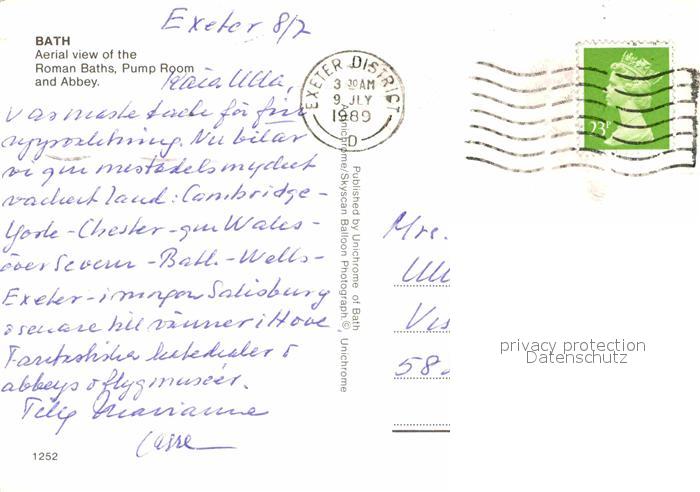 Exeter 8/7
BATH
Aerial view of the
Roman Baths, Pump Room
and Abbey.
Kära Ulla,
vårmaste tack för fin
uppvaktning. Nu bilar
vi gm mestadels mycket
vackert land: Cambridge -
York - Chester - gm Wales -
över Severn - Bath - Wells -
Exeter - i morgon Salisburg
o senare till vänner i Hove.
Fantastiska katedraler o
abbeys o flygmuséer.
Marianne
Lasse
1252
EXETER DISTRICT
3 30AM
9 JLY
1989
D
Published by Unichrome of Bath
A Unichrome/Skyscan Balloon Photograph © Unichrome
23P
Mrs.
Ull
Vis
58
privacy protection
Datenschutz